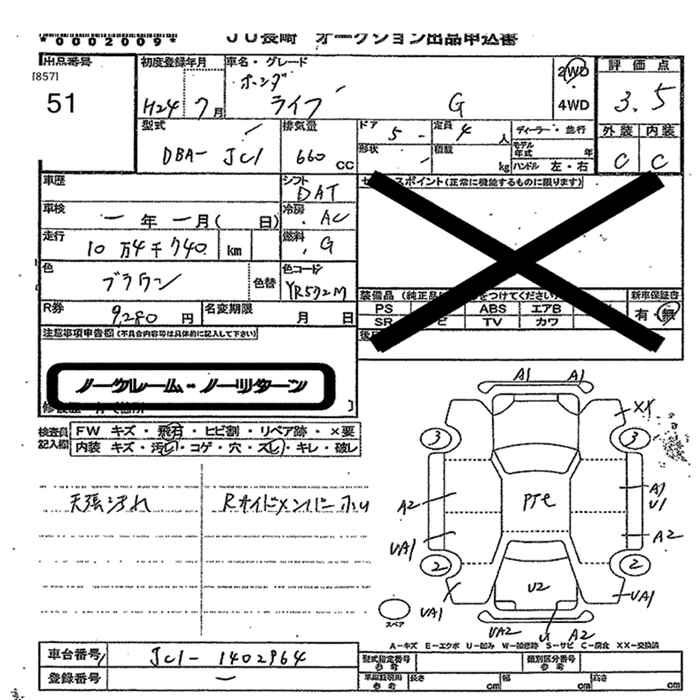 *0002009*
JU長崎 オークション出品申込書
出品番号
[857]
51
初度登録年月
H24 7月
車名・グレード
ホンダ
ライフ G
2WD
4WD
評価点
3.5
外装 内装
C C
型式
DBA- JC1
排気量
660 CC
ドア 5 -
定員 4 人
ディーラー・並行
形状 -
積載 kg
モデル年式 年
ハンドル 左・右
車歴
シフト
DAT
車検
一 年 一 月( 日)
冷房
AC
走行
10万4千740 km
燃料
G
色
ブラウン
色替
色コード
YR572M
R券
9,280 円
名変期限
月 日
セールスポイント(正常に機能するものに限ります)
装備品
PS ABS エアB
SR TV カワ
新車保証書
有・無
注意事項申告欄(不具合内容等は具体的に記入して下さい)
ノークレーム・ノーリターン
検査員記入欄
FW キズ・飛石・ヒビ割・リペア跡・×要
内装 キズ・汚れ・コゲ・穴・スレ・キレ・破レ
天張汚れ
Rサイドメンバー
A1 A1
XX
3 3
A2
PTe
A1
U1
UA1
A2
2 2
UA1
U2
UA1
UA2 U A2
スペア
A-キズ E-エクボ U-凹み W-補修跡 S-サビ C-腐食 XX-交換済
車台番号
JC1- 1402964
登録番号
一
型式指定番号
参考
類別区分番号
参考
車庫証明用
参考
長さ cm
幅 cm
高さ cm